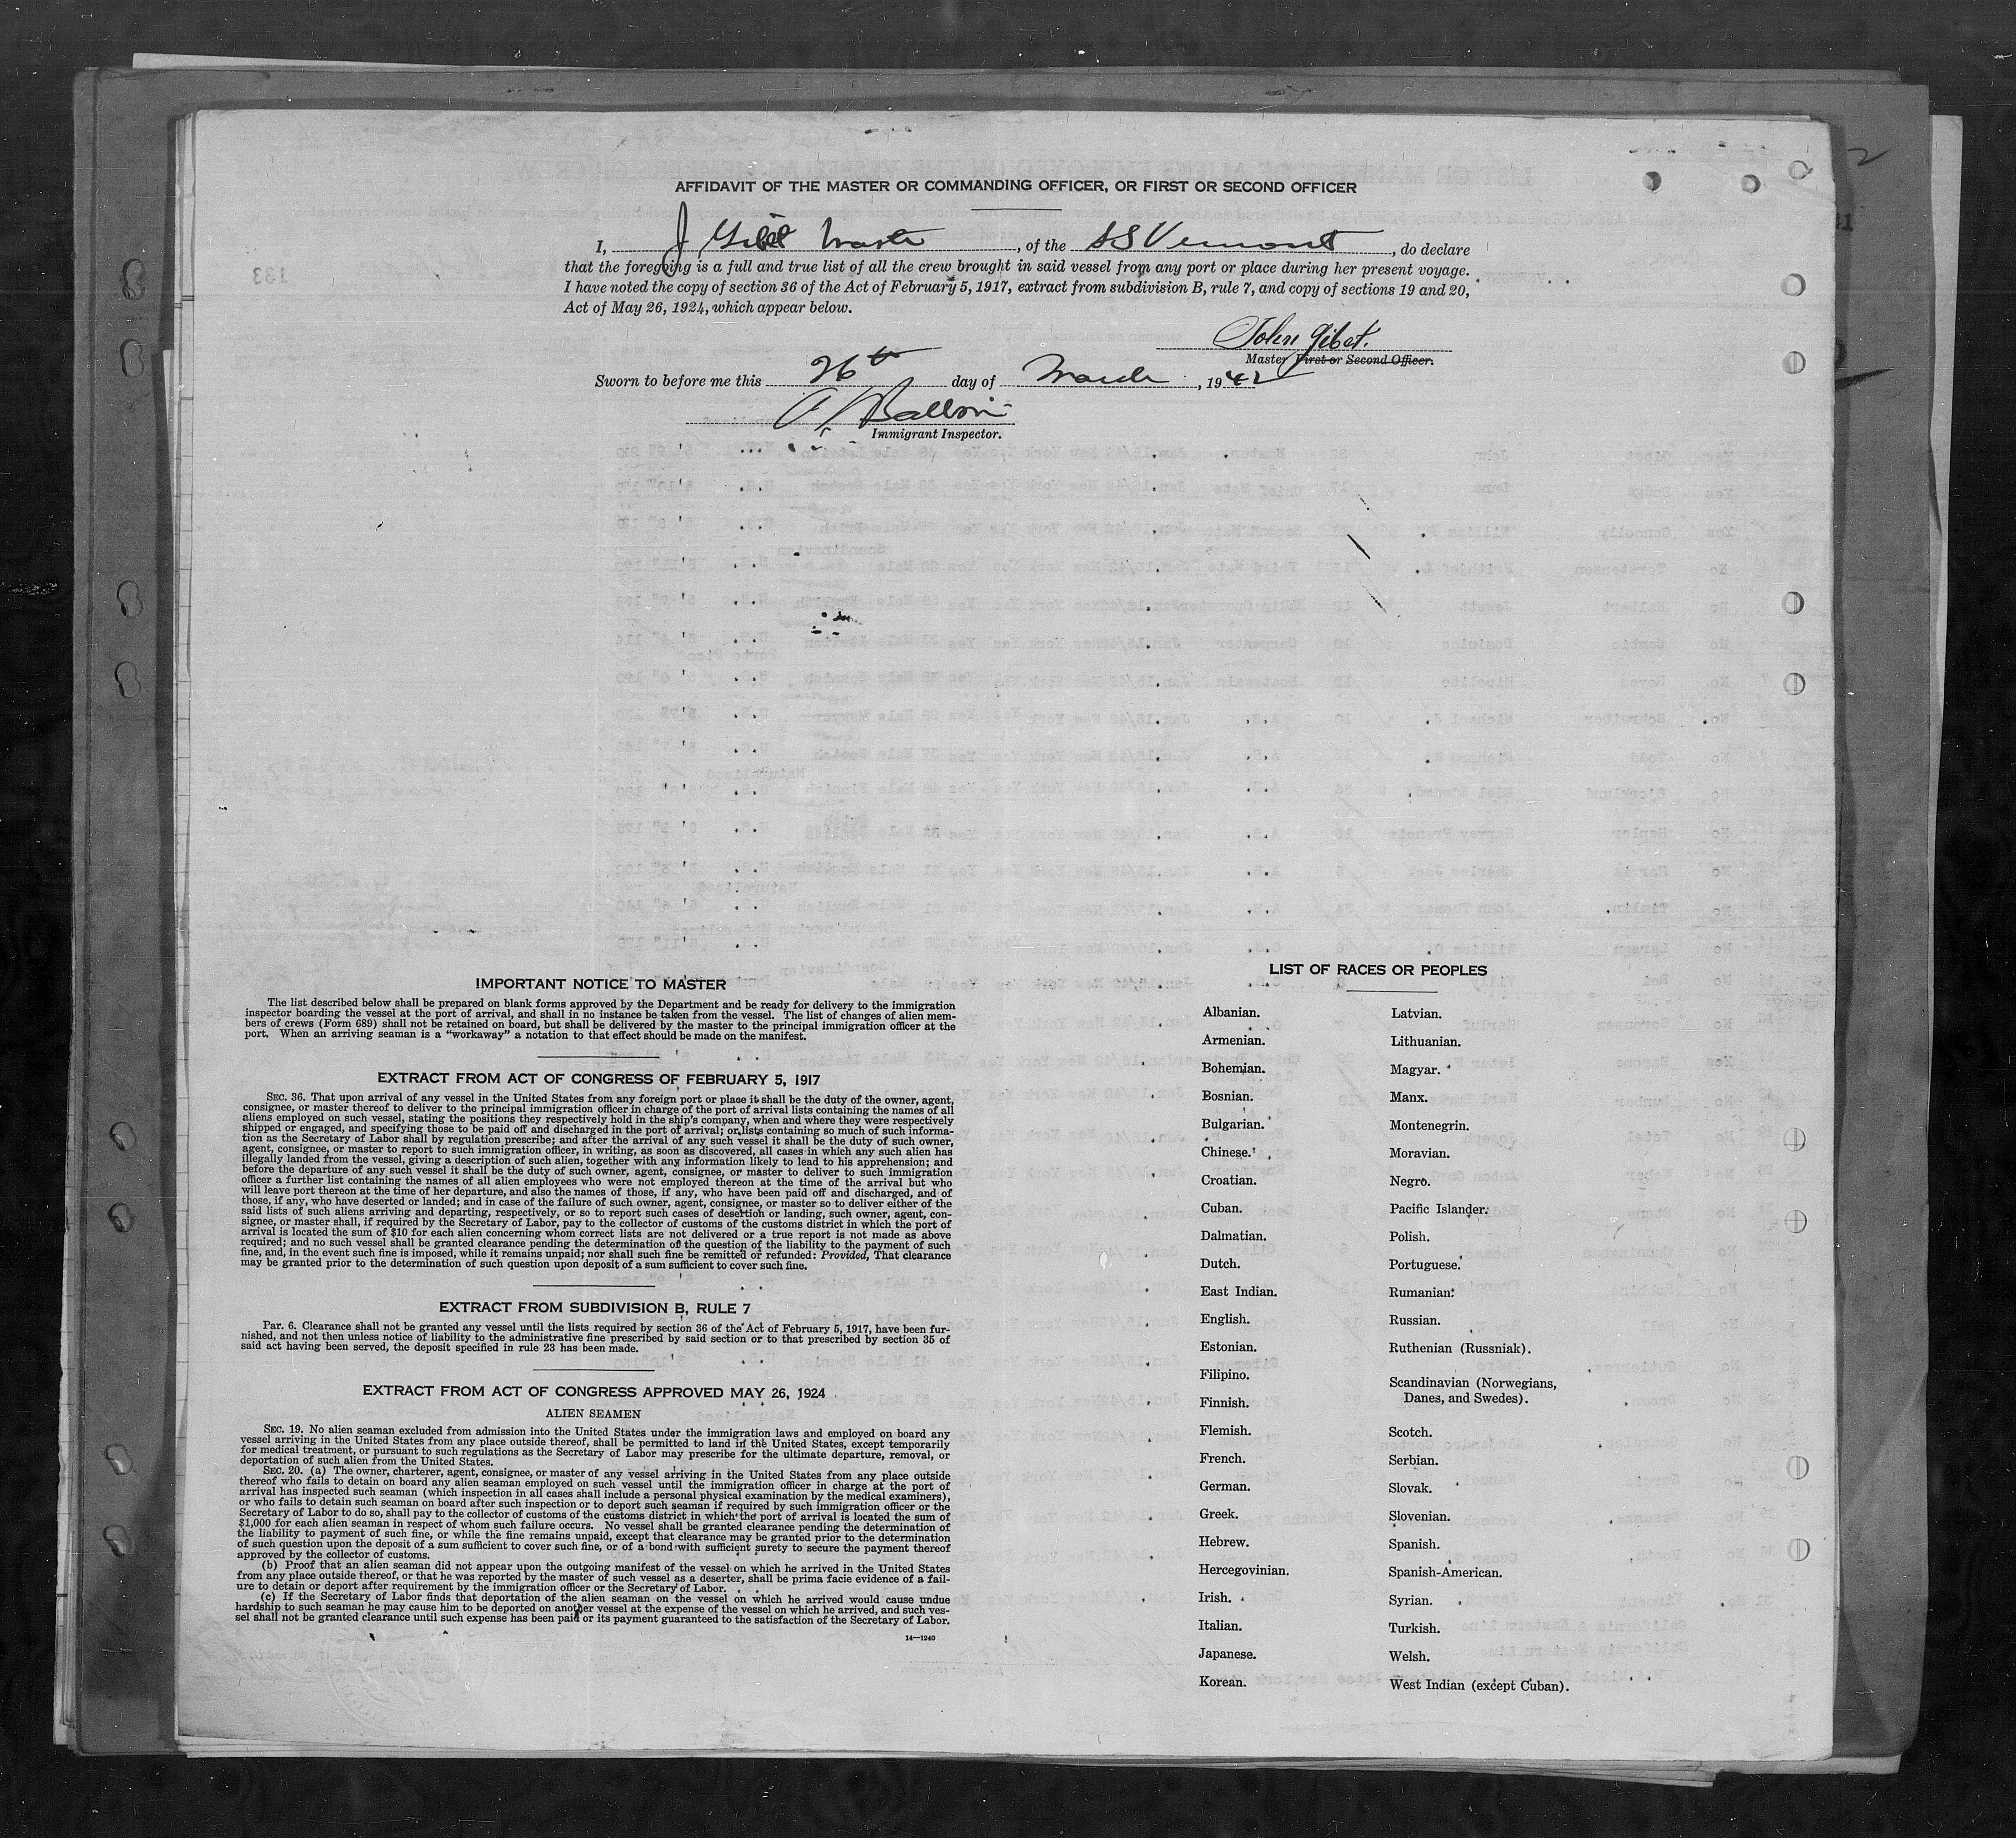 AFFIDAVIT OF THE MASTER OR COMMANDING OFFICER, OR FIRST OR SECOND OFFICER
I, J Gibet Master, of the SS Vermont, do declare
that the foregoing is a full and true list of all the crew brought in said vessel from any port or place during her present voyage.
I have noted the copy of section 36 of the Act of February 5, 1917, extract from subdivision B, rule 7, and copy of sections 19 and 20,
Act of May 26, 1924, which appear below.
John Gibet.
Master First or Second Officer.
Sworn to before me this 26th day of March, 1942
Immigrant Inspector.
IMPORTANT NOTICE TO MASTER
The list described below shall be prepared on blank forms approved by the Department and be ready for delivery to the immigration
inspector boarding the vessel at the port of arrival, and shall in no instance be taken from the vessel. The list of changes of alien mem-
bers of crews (Form 689) shall not be retained on board, but shall be delivered by the master to the principal immigration officer at the
port. When an arriving seaman is a "workaway" a notation to that effect should be made on the manifest.
EXTRACT FROM ACT OF CONGRESS OF FEBRUARY 5, 1917
SEC. 36. That upon arrival of any vessel in the United States from any foreign port or place it shall be the duty of the owner, agent,
consignee, or master thereof to deliver to the principal immigration officer in charge of the port of arrival lists containing the names of all
aliens employed on such vessel, stating the positions they respectively hold in the ship's company, when and where they were respectively
shipped or engaged, and specifying those to be paid off and discharged in the port of arrival; or lists containing so much of such informa-
tion as the Secretary of Labor shall by regulation prescribe; and after the arrival of any such vessel it shall be the duty of such owner,
agent, consignee, or master to report to such immigration officer, in writing, as soon as discovered, all cases in which any such alien has
illegally landed from the vessel, giving a description of such alien, together with any information likely to lead to his apprehension; and
before the departure of any such vessel it shall be the duty of such owner, agent, consignee, or master to deliver to such immigration
officer a further list containing the names of all alien employees who were not employed thereon at the time of the arrival but who
will leave port thereon at the time of her departure, and also the names of those, if any, who have been paid off and discharged, and of
those, if any, who have deserted or landed; and in case of the failure of such owner, agent, consignee, or master so to deliver either of the
said lists of such aliens arriving and departing, respectively, or so to report such cases of desertion or landing, such owner, agent, con-
signee, or master shall, if required by the Secretary of Labor, pay to the collector of customs of the customs district in which the port of
arrival is located the sum of $10 for each alien concerning whom correct lists are not delivered or a true report is not made as above
required; and no such vessel shall be granted clearance pending the determination of the question of the liability to the payment of such
fine, and, in the event such fine is imposed, while it remains unpaid; nor shall such fine be remitted or refunded: Provided, That clearance
may be granted prior to the determination of such question upon deposit of a sum sufficient to cover such fine.
EXTRACT FROM SUBDIVISION B, RULE 7
PAR. 6. Clearance shall not be granted any vessel until the lists required by section 36 of the Act of February 5, 1917, have been fur-
nished, and not then unless notice of liability to the administrative fine prescribed by said section or to that prescribed by section 35 of
said act having been served, the deposit specified in rule 23 has been made.
EXTRACT FROM ACT OF CONGRESS APPROVED MAY 26, 1924
ALIEN SEAMEN
SEC. 19. No alien seaman excluded from admission into the United States under the immigration laws and employed on board any
vessel arriving in the United States from any place outside thereof, shall be permitted to land in the United States, except temporarily
for medical treatment, or pursuant to such regulations as the Secretary of Labor may prescribe for the ultimate departure, removal, or
deportation of such alien from the United States.
SEC. 20. (a) The owner, charterer, agent, consignee, or master of any vessel arriving in the United States from any place outside
thereof who fails to detain on board any alien seaman employed on such vessel until the immigration officer in charge at the port of
arrival has inspected such seaman (which inspection in all cases shall include a personal physical examination by the medical examiners),
or who fails to detain such seaman on board after such inspection or to deport such seaman if required by such immigration officer or the
Secretary of Labor to do so, shall pay to the collector of customs of the customs district in which the port of arrival is located the sum of
$1,000 for each alien seaman in respect of whom such failure occurs. No vessel shall be granted clearance pending the determination of
the liability to payment of such fine, or while the fine remains unpaid, except that clearance may be granted prior to the determination
of such question upon the deposit of a sum sufficient to cover such fine, or of a bond with sufficient surety to secure the payment thereof
approved by the collector of customs.
(b) Proof that an alien seaman did not appear upon the outgoing manifest of the vessel on which he arrived in the United States
from any place outside thereof, or that he was reported by the master of such vessel as a deserter, shall be prima facie evidence of a fail-
ure to detain or deport after requirement by the immigration officer or the Secretary of Labor.
(c) If the Secretary of Labor finds that deportation of the alien seaman on the vessel on which he arrived would cause undue
hardship to such seaman he may cause him to be deported on another vessel at the expense of the vessel on which he arrived, and such ves-
sel shall not be granted clearance until such expense has been paid or its payment guaranteed to the satisfaction of the Secretary of Labor.
14—1240
LIST OF RACES OR PEOPLES
Albanian.
Armenian.
Bohemian.
Bosnian.
Bulgarian.
Chinese.
Croatian.
Cuban.
Dalmatian.
Dutch.
East Indian.
English.
Estonian.
Filipino.
Finnish.
Flemish.
French.
German.
Greek.
Hebrew.
Hercegovinian.
Irish.
Italian.
Japanese.
Korean.
Latvian.
Lithuanian.
Magyar.
Manx.
Montenegrin.
Moravian.
Negro.
Pacific Islander.
Polish.
Portuguese.
Rumanian.
Russian.
Ruthenian (Russniak).
Scandinavian (Norwegians,
Danes, and Swedes).
Scotch.
Serbian.
Slovak.
Slovenian.
Spanish.
Spanish-American.
Syrian.
Turkish.
Welsh.
West Indian (except Cuban).